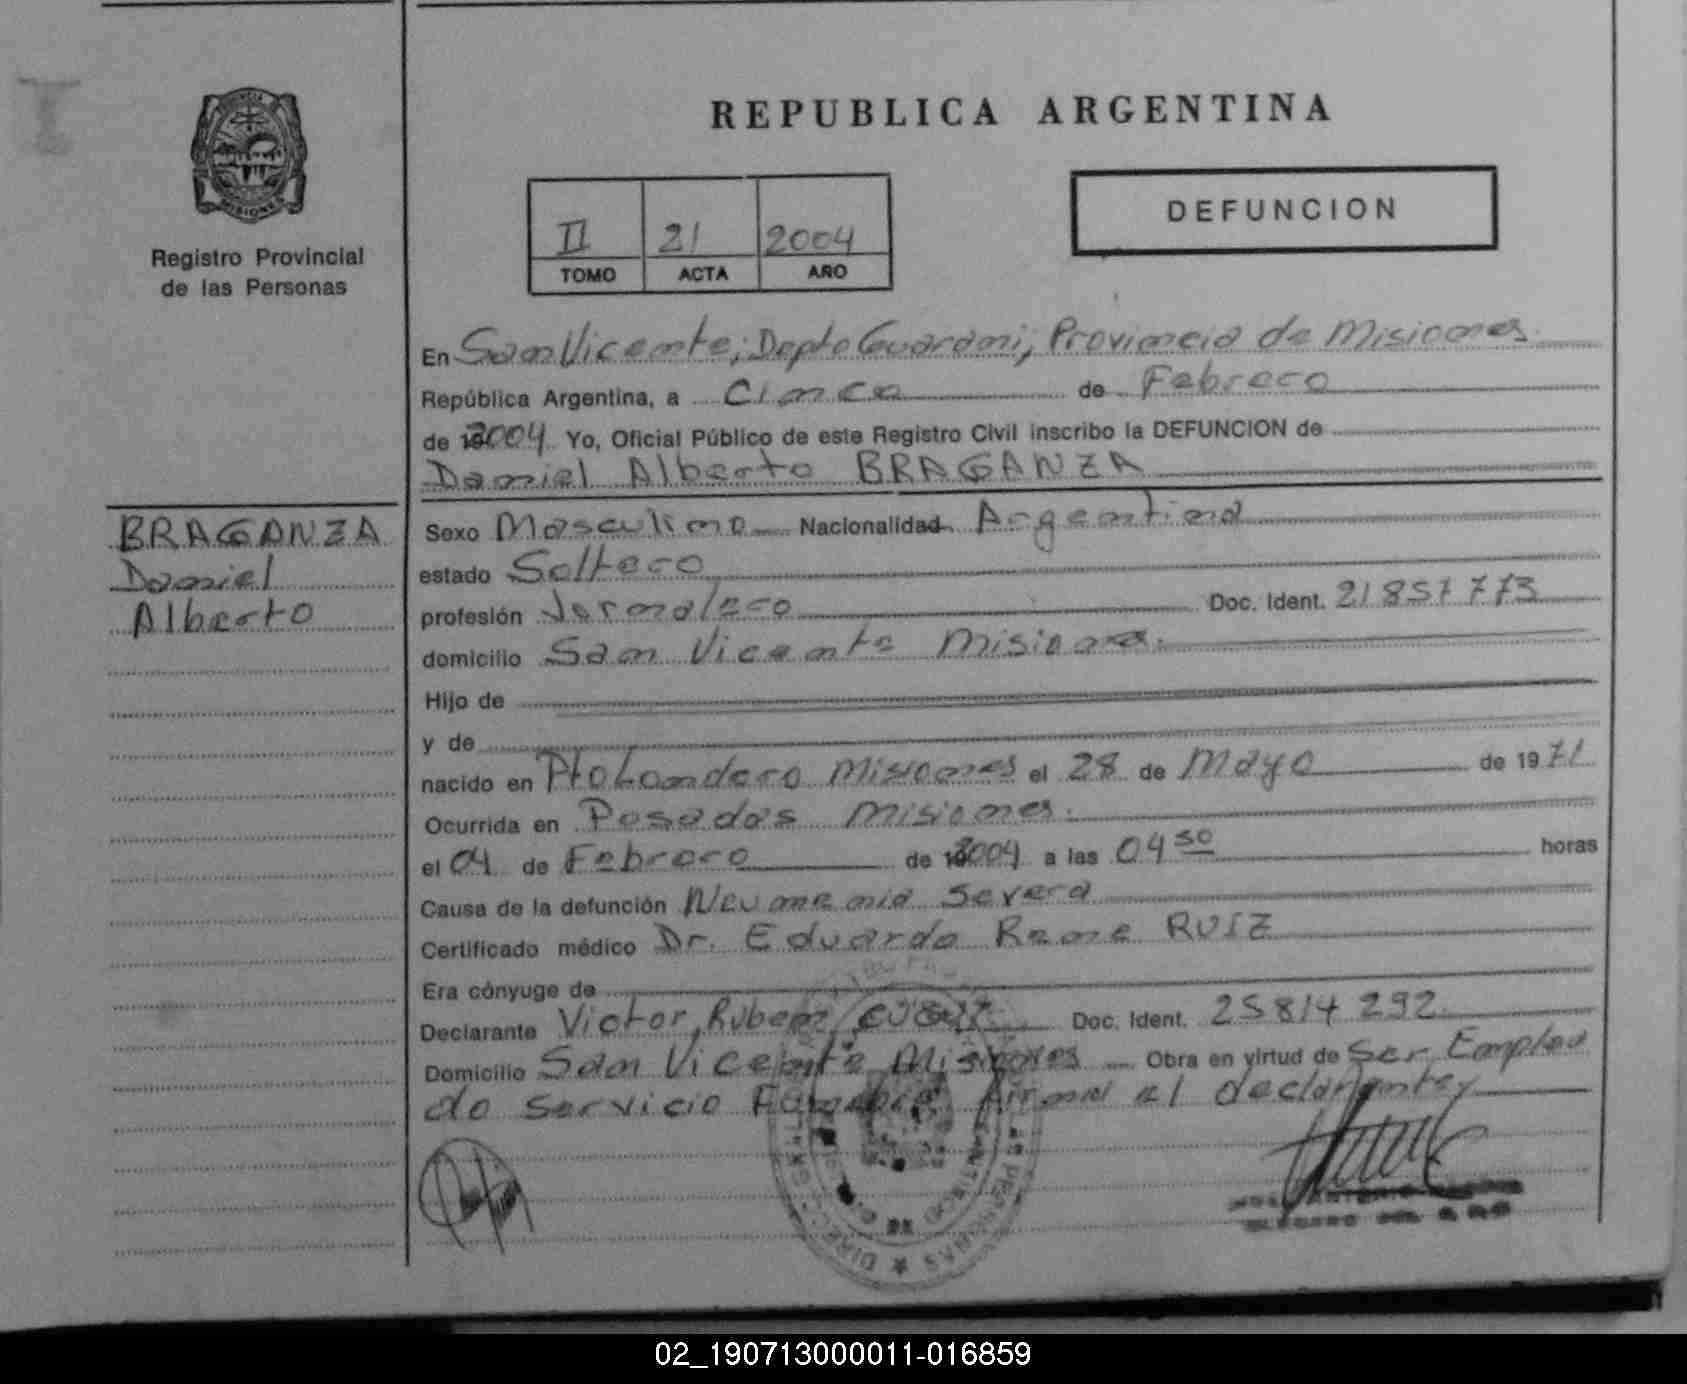 REPUBLICA ARGENTINA
PROVINCIA DE
MISIONES
Registro Provincial
de las Personas
II 21 2004
TOMO ACTA AÑO
DEFUNCION
En San Vicente; Depto Guarani; Provincia de Misiones.
República Argentina, a Cinco de Febrero
de 2004 Yo, Oficial Público de este Registro Civil inscribo la DEFUNCION de
Daniel Alberto BRAGANZA
BRAGANZA
Daniel
Alberto
Sexo Masculino Nacionalidad Argentina
estado Soltero
profesión Jornalero Doc. Ident. 21857773
domicilio San Vicente Misiones.
Hijo de
y de
nacido en Pto Misiones el 28 de Mayo de 1971
Ocurrida en Posadas Misiones.
el 04 de Febrero de 2004 a las 04 30 horas
Causa de la defunción Neumonia Severa
Certificado médico Dr. Eduardo Rene RUIZ
Era cónyuge de
Declarante Victor Ruben Doc. Ident. 25814292
Domicilio San Vicente Misiones Obra en virtud de Ser Emplea
do Servicio Funebre Firma el declarante
02_190713000011-016859